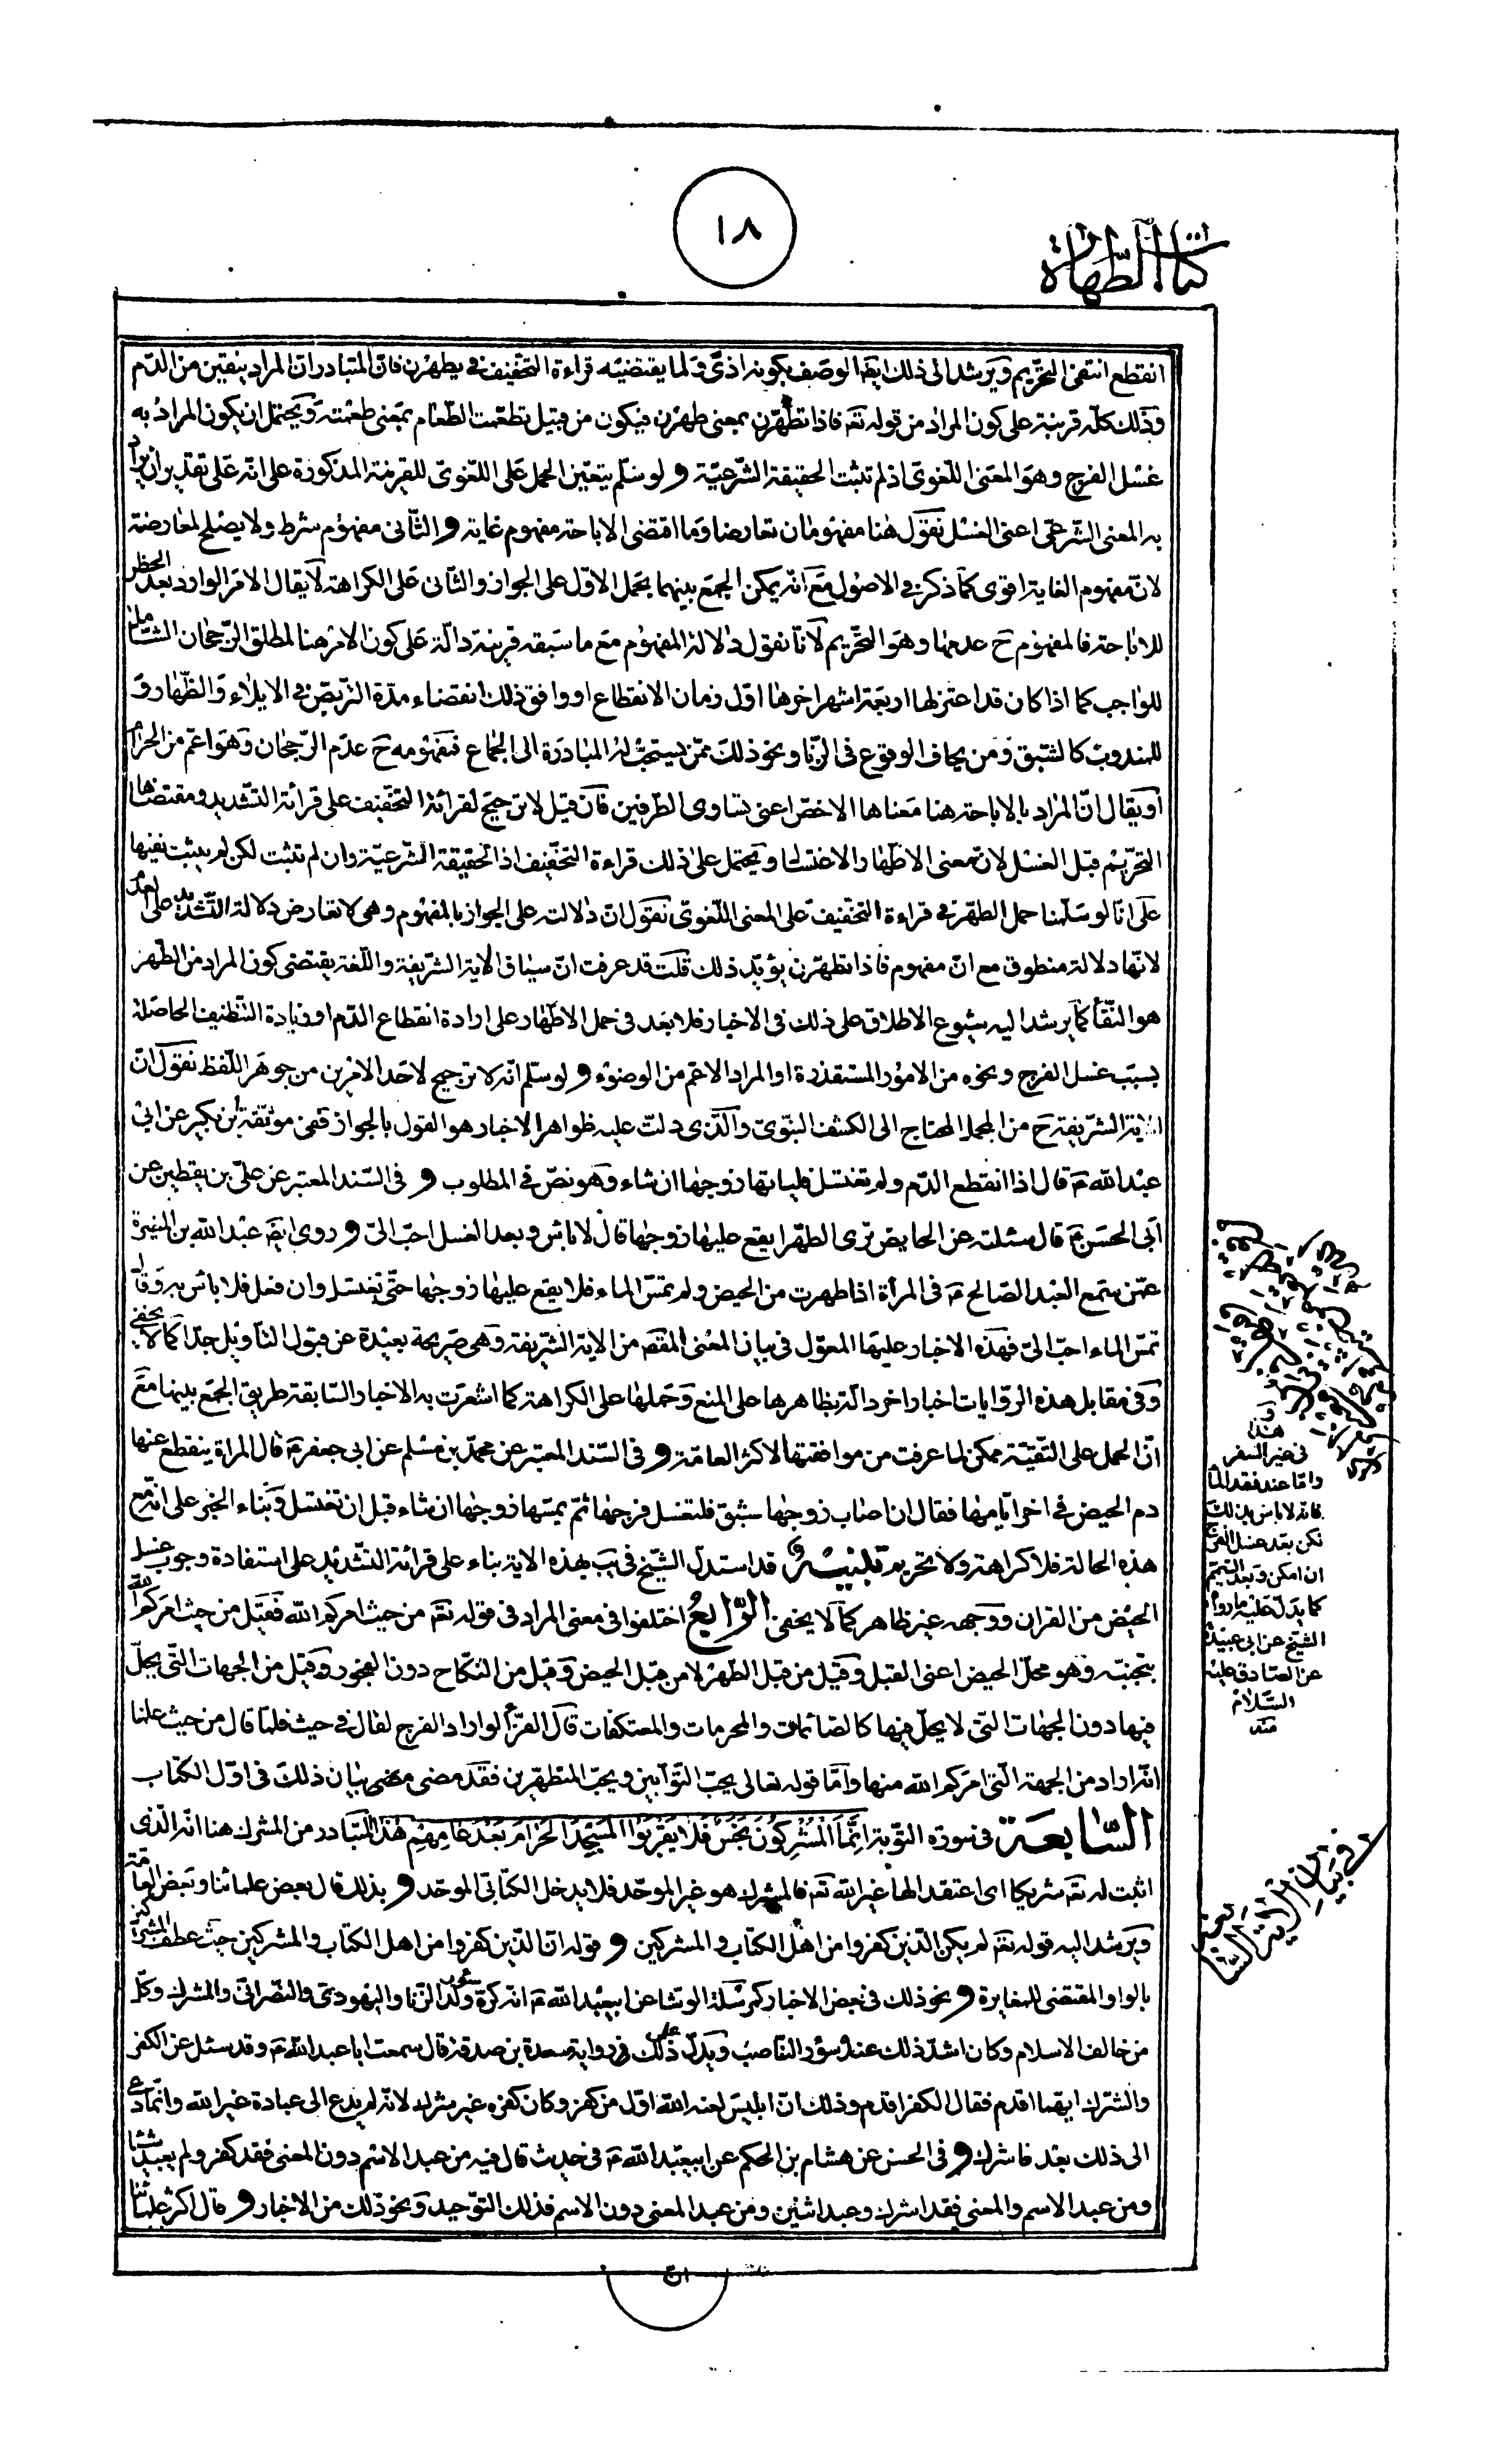 ١٨
كتاب الطهارة
انقطع انتفى التحريم ويرشد الى ذلك ايضه الوصف بكونه اذى ولما يقتضيه قراءة التخفيف في يطهرن فان المتبادر ان المراد ينقين من الدّم
وذلك كله قرينة على كون المراد من قوله تعه فاذا تطهّرن بمعنى طهرن فيكون من قبيل تطعّمت الطّعام بمعنى طعمته ويحتمل ان يكون المراد به
غسل الفرج وهو المعنى اللّغوى اذ لم تثبت الحقيقة الشّرعيّة و لو سلّم يتعيّن الحمل على اللّغوىّ للقرينة المذكورة على انّه على تقدير ان يراد
به المعنى الشّرعى اعنى الغسل نقول هنا مفهومان تعارضا وما اقتضى الاباحة مفهوم غاية و الثّانى مفهوم شرط ولا يصلح لمعارضته
لانّ مفهوم الغاية اقوى كما ذكر في الاصول مع انّه يمكن الجمع بينهما بحمل الاوّل على الجواز والثّانى على الكراهة لا يقال الامر الوارد بعد الحظر
للاباحة فالمفهوم ح عدمها وهو التّحريم لانّا نقول دلالة المفهوم مع ما سبقه قرينة دالّة على كون الامر هنا لمطلق الرّجحان الشامل
للواجب كما اذا كان قد اعتزلها اربعة اشهر اخرها اوّل زمان الانقطاع او وافق ذلك انقضاء مدّة التربّص في الايلاء والظّهار و
للمندوب كالشّبق ومن يخاف الوقوع في الزّنا ونحو ذلك ممّن يستحبّ له المبادرة الى الجماع فمفهومه ح عدم الرّجحان وهو اعم من الحرام
او يقال انّ المراد بالاباحة هنا معناها الاخصّ اعنى تساوى الطّرفين فان قيل لا ترجيح لقرائة التخفيف على قرائة التّشديد ومقتضاها
التحريم قبل الغسل لانّ معنى الاطّهار الاغتسال ويحتمل على ذلك قراءة التخفيف اذ الحقيقة الشّرعيّة وان لم تثبت لكن لم يثبت نفيها
على انّا لو سلّمنا حمل الطهر في قراءة التخفيف على المعنى اللّغوىّ نقول انّ دلالته على الجواز بالمفهوم وهى لا تعارض دلالة التّشديد على
لانّها دلالة منطوق مع انّ مفهوم فاذا تطهّرن يؤيّد ذلك قلت قد عرفت انّ سياق الاية الشّريفة واللّغة يقتضى كون المراد من الطّهر
هو النّقأ كما يرشد اليه شيوع الاطلاق على ذلك في الاخبار فلا بعد في حمل الاطّهار على ارادة انقطاع الدّم او زيادة التّنظيف الحاصلة
بسبب غسل الفرج ونحوه من الامور المستقذرة او المراد الاعم من الوضوء و لو سلّم انّه لا ترجيح لاحد الامرين من جوهر اللّفظ نقول انّ
الاية الشّريفة ح من المجمل المحتاج الى الكشف النّبوىّ والّذى دلّت عليه ظواهر الاخبار هو القول بالجواز ففى موثّقة بن بكير عن ابى
عبد الله ع قال اذا انقطع الدّم ولم تغتسل فلياتها زوجها ان شاء وهو نصّ في المطلوب و فى السّند المعتبر عن علىّ بن يقطين عن
ابى الحسن ع قال سئلته عن الحايض ترى الطهر ايقع عليها زوجها قال لا باس وبعد الغسل احبّ الىّ و روى ايضه عبد الله بن المغيرة
عمّن سمع العبد الصّالح ع فى المرأة اذا طهرت من الحيض ولم تمسّ الماء فلا يقع عليها زوجها حتّى تغتسل وان فعل فلا باس به وقال
تمسّ الماء احبّ الىّ فهذه الاخبار عليها المعوّل فى بيان المعنى المقصه من الاية الشّريفة وهى صريحة بعيدة عن قبول التأويل جدّا كما لا يخفى
وفى مقابل هذه الرّوايات اخبار اخر دالّة بظاهرها على المنع وحملها على الكراهة كما اشعرت به الاخبار السّابقة طريق الجمع بينها مع
انّ الحمل على التّقيّة ممكن لما عرفت من موافقتها لاكثر العامّة و فى السّند المعتبر عن محمّد بن مسلم عن ابى جعفر ع قال المراة ينقطع عنها
دم الحيض في اخر ايّامها فقال ان اصاب زوجها شبق فلتغسل فرجها ثم يمسّها زوجها ان شاء قبل ان تغتسل وبناء الخبر على انّه مع
هذه الحالة فلا كراهة ولا تحريم تنبيه و قد استدلّ الشّيخ في يب بهذه الاية بناء على قرائة التّشديد على استفادة وجوب غسل
الحيض من القران ووجهه غير ظاهر كما لا يخفى الرّابع اختلفوا في معنى المراد فى قوله تعه من حيث امركم الله فقيل من حيث امركم الله
بتجنّبه وهو محلّ الحيض اعنى القبل وقيل من قبل الطّهر لا من قبل الحيض وقيل من النّكاح دون الفجور وقيل من الجهات الّتى يحلّ
فيها دون الجهات الّتى لا يحلّ فيها كالصّائمات والمحرمات والمعتكفات قال الفرّأ لو اراد الفرج لقال فى حيث فلمّا قال من حيث علمنا
انّه اراد من الجهة الّتى امركم الله منها وامّا قوله تعالى يحبّ التّوّابين ويحبّ المتطهّرين فقد مضى مضى بيان ذلك فى اوّل الكتاب
السّابعة فى سورة التّوبة انّما المشركون نجس فلا يقربوا المسجد الحرام بعد عامهم هذا المتبادر من المشرك هنا انّه الّذى
اثبت له تعه شريكا اى اعتقد الها غير الله تعه فالمشرك هو غير الموحّد فلا يدخل الكتابىّ الموحّد و بذلك قال بعض علمائنا وبعض العامّة
ويرشد اليه قوله تعه لم يكن الّذين كفروا من اهل الكتاب والمشركين و قوله انّ الّذين كفروا من اهل الكتاب والمشركين حيث عطف المشركين
بالواو المقتضى للمغايرة و نحو ذلك فى بعض الاخبار كمرسلة الوشا عن ابيعبد الله ع انه كره سؤر ولد الزّنا واليهودىّ والنّصرانىّ والمشرك وكلّ
من خالف الاسلام وكان اشدّ ذلك عنده سؤر النّاصب ويدلّ على ذلك فى رواية مسعدة بن صدقة قال سمعت ابا عبد الله ع وقد سئل عن الكفر
والشّرك ايّهما اقدم فقال الكفر اقدم وذلك انّ ابليس لعنه الله اوّل من كفر وكان كفره غير شرك لانّه لم يدع الى عبادة غير الله وانّما دعى
الى ذلك بعد فاشرك و فى الحسن عن هشام بن الحكم عن ابيعبد الله ع فى حديث قال فيه من عبد الاسم دون المعنى فقد كفر ولم يعبد شيئا
ومن عبد الاسم والمعنى فقد اشرك وعبد اثنين ومن عبد المعنى دون الاسم فذلك التّوحيد ونحو ذلك من الاخبار و قال اكثر علمائنا
هذا
فى غير السفر
وامّا عند فقد الماء
فانّه لا باس بذلك
لكن بعد غسل الفرج
ان امكن وبعد التيمّم
كما يدلّ عليه ما رواه
الشّيخ عن ابى عبيدة
عن الصّادق عليه
السّلام
منه
فى بيان الاية السّابعة
انّ